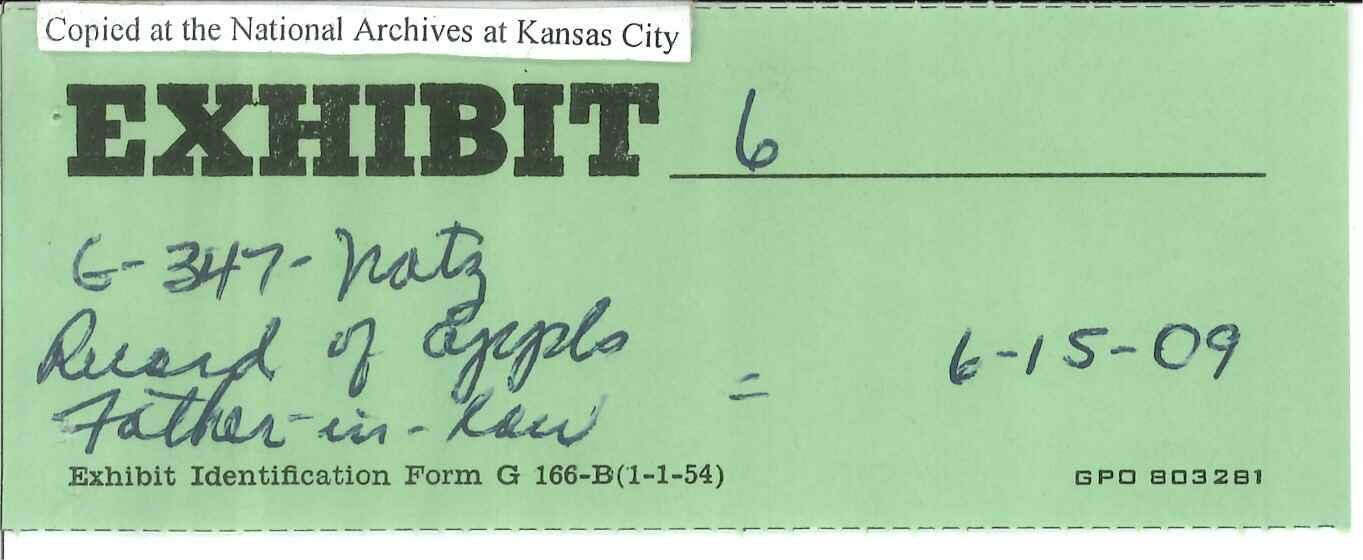 Copied at the National Archives at Kansas City
EXHIBIT 6
G-347-Natz
Record of Appls
Father-in-law = 6-15-09
Exhibit Identification Form G 166-B(1-1-54)
GPO 803281